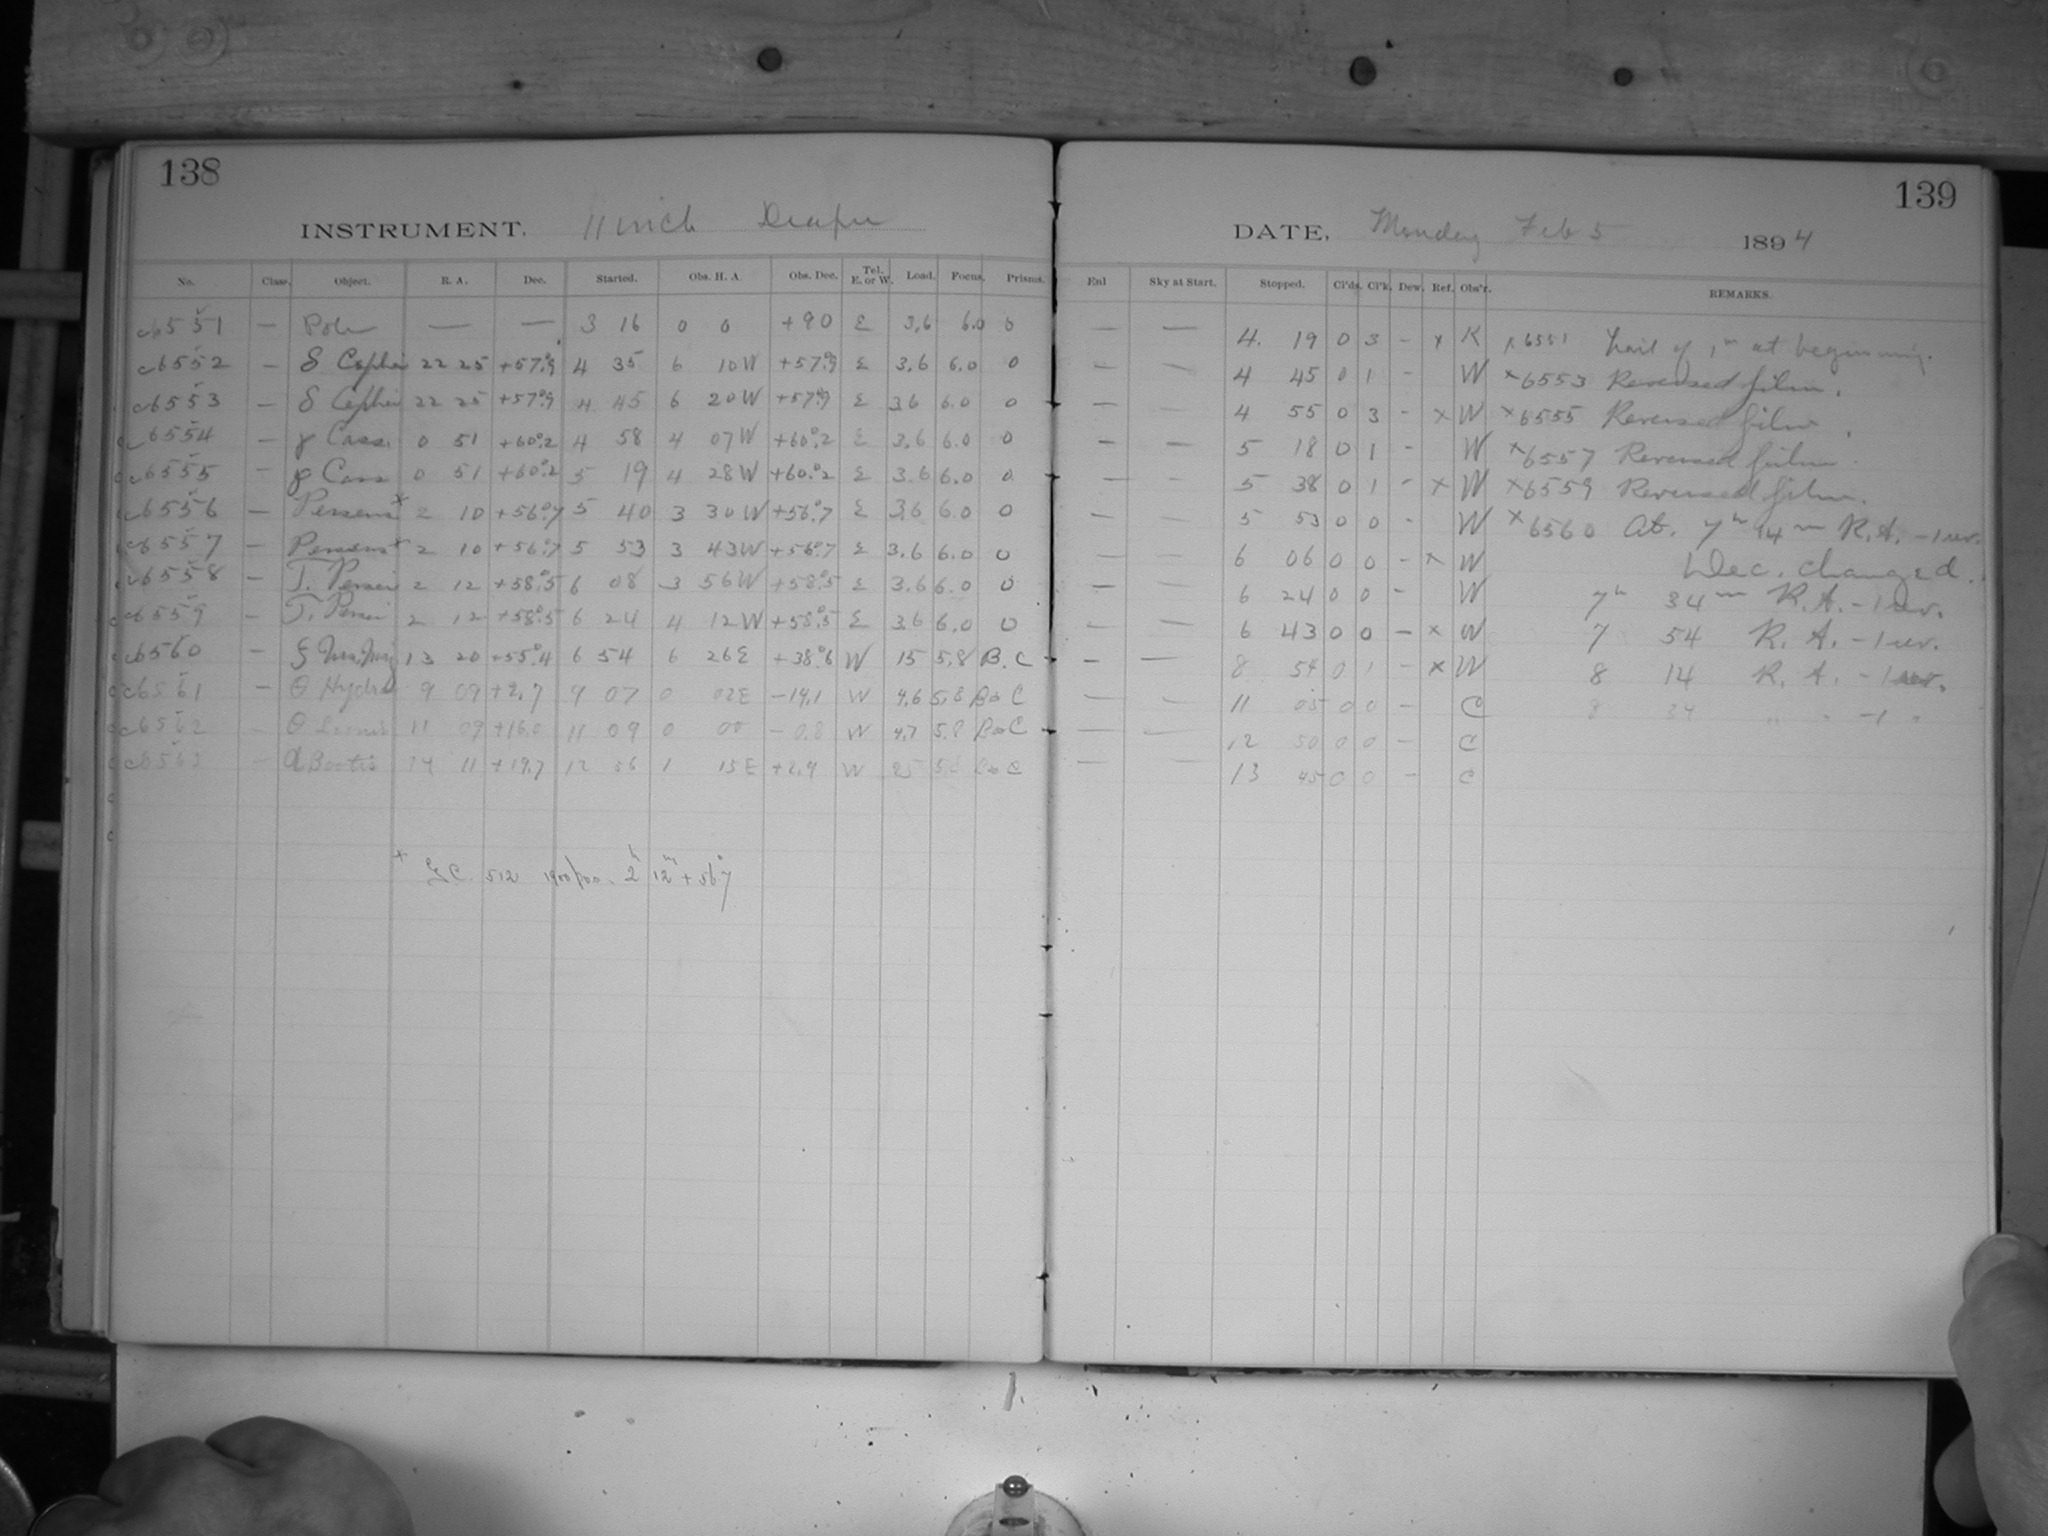 138
INSTRUMENT. 11 inch Draper
No. Class. Object. R. A. Dec. Started. Obs. H. A. Obs. Dec. Tel. E. or W. Load. Focus. Prisms.
c6551 — Pole — — 3 16 0 0 +90 E 3.6 6.0 0
c6552 — δ Cephei 22 25 +57°.9 4 35 6 10W +57°.9 E 3.6 6.0 0
c6553 — δ Cephei 22 25 +57°.9 4 45 6 20W +57°.9 E 3.6 6.0 0
c6554 — γ Cass. 0 51 +60°.2 4 58 4 07W +60°.2 E 3.6 6.0 0
c6555 — γ Cass 0 51 +60°.2 5 19 4 28W +60°.2 E 3.6 6.0 0
c6556 — Perseus x 2 10 +56°.7 5 40 3 30W +56°.7 E 3.6 6.0 0
c6557 — Perseus x 2 10 +56°.7 5 53 3 43W +56°.7 E 3.6 6.0 0
c6558 — T. Persei 2 12 +58°.5 6 08 3 56W +58°.5 E 3.6 6.0 0
c6559 — T. Persei 2 12 +58°.5 6 24 4 12W +58°.5 E 3.6 6.0 0
c6560 — ζ Urs. Maj 13 20 +55°.4 6 54 6 26E +38°.6 W 15 5.8 B. C
c6561 — θ Hydra 9 09 +2.7 9 07 0 02E −14.1 W 4.6 5.8 B & C
c6562 — θ Leonis 11 09 +16.0 11 09 0 00 −0.8 W 4.7 5.8 B & C
c6563 — α Bootis 14 11 +19.7 12 56 1 15E +2.9 W 25 5.8 B & C
x G.C. 512 1900/00. 2h 12m +56°7
139
DATE, Monday Feb 5 1894
Enl Sky at Start. Stopped. Cl'ds. Cl'k. Dew. Ref. Obs'r. REMARKS.
— — 4 19 0 3 – x K x6551 trail of 1m at beginning.
— — 4 45 0 1 – W x6553 Reversed film.
— — 4 55 0 3 – x W x6555 Reversed film.
— — 5 18 0 1 – W x6557 Reversed film.
— — 5 38 0 1 – x W x6559 Reversed film.
— — 5 53 0 0 – W x6560 At. 7h 14m R.A. −1 rev.
— — 6 06 0 0 – x W Dec. changed.
— — 6 24 0 0 – W 7h 34m R.A. −1 rev.
— — 6 43 0 0 – x W 7 54 R.A. −1 rev.
— — 8 54 0 1 – x W 8 14 R.A. −1 rev.
— — 11 05 0 0 – C 8 34 " " −1 "
— — 12 50 0 0 – C
— — 13 45 0 0 – C